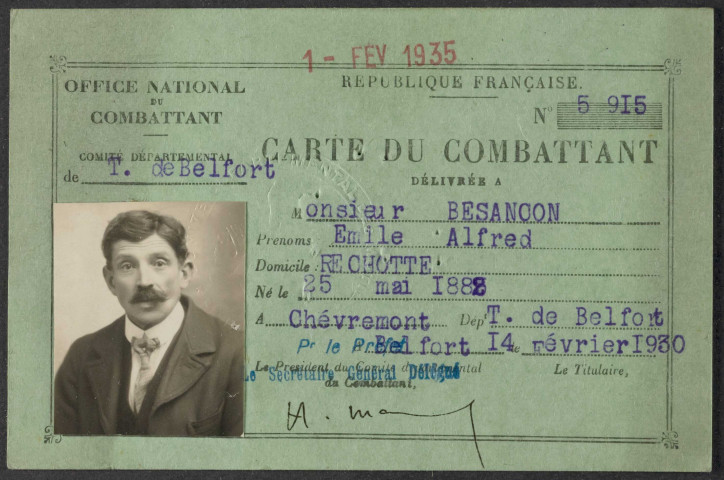 1 - FÉV 1935
OFFICE NATIONAL
DU
COMBATTANT
COMITÉ DÉPARTEMENTAL
de T. de Belfort
RÉPUBLIQUE FRANÇAISE.
N° 5 9I5
CARTE DU COMBATTANT
DÉLIVRÉE A
Monsieur BESANCON
Prénoms Emile Alfred
Domicile : RECHOTTE
Né le 25 mai I888
A Chévremont Dépt T. de Belfort
Pr le Préfet Belfort I4 février I930
Le Président du Comité départemental Le Titulaire,
Le Secrétaire Général Délégué
du Combattant,